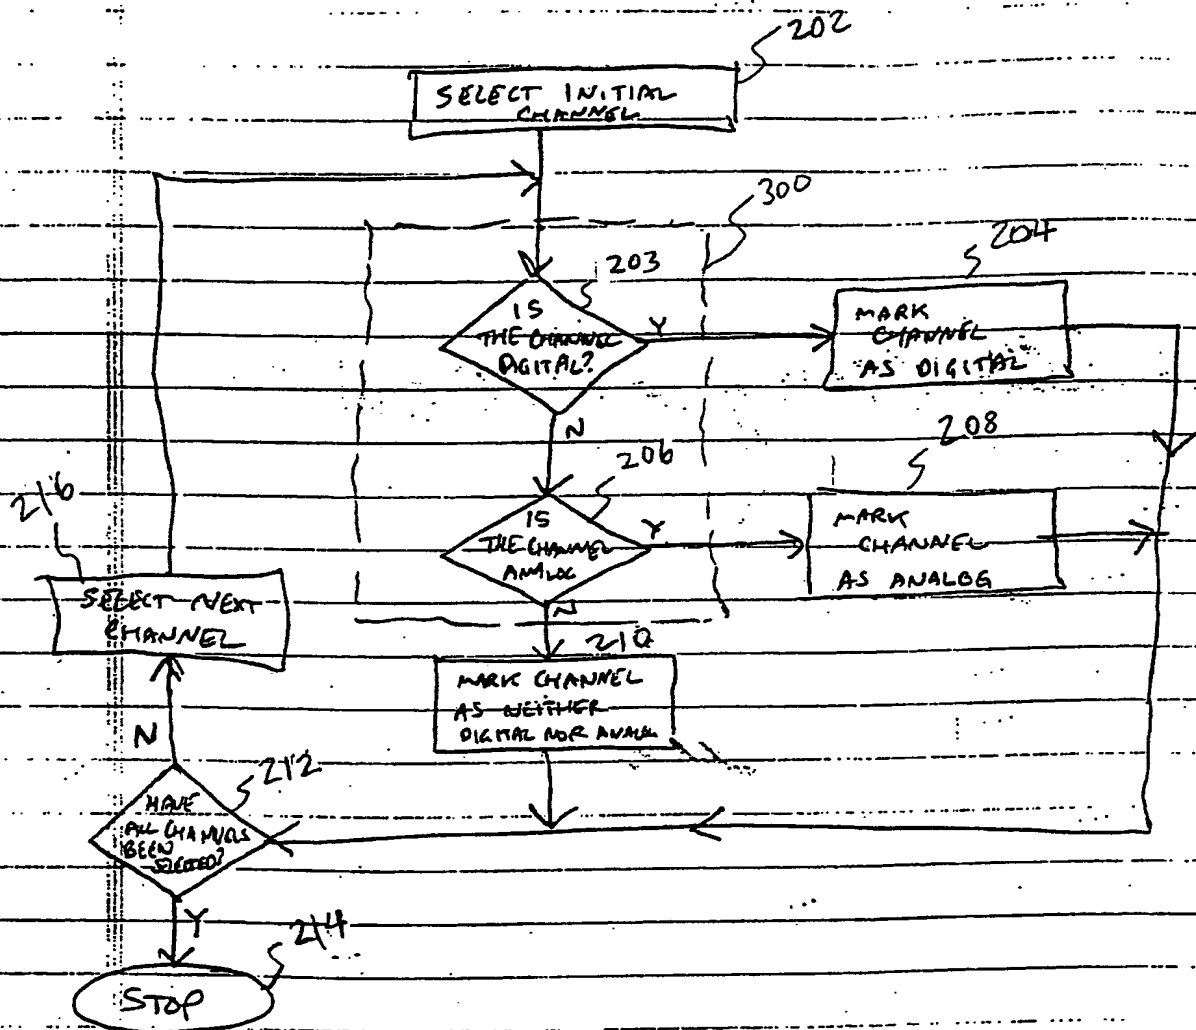 202
SELECT INITIAL
CHANNEL
300
203
204
IS
THE CHANNEL
DIGITAL?
Y
MARK
CHANNEL
AS DIGITAL
N
206
208
216
IS
THE CHANNEL
ANALOG
Y
MARK
CHANNEL
AS ANALOG
SELECT NEXT
CHANNEL
N
210
MARK CHANNEL
AS NEITHER
DIGITAL NOR ANALOG
N
212
HAVE
ALL CHANNELS
BEEN
SELECTED?
Y
214
STOP